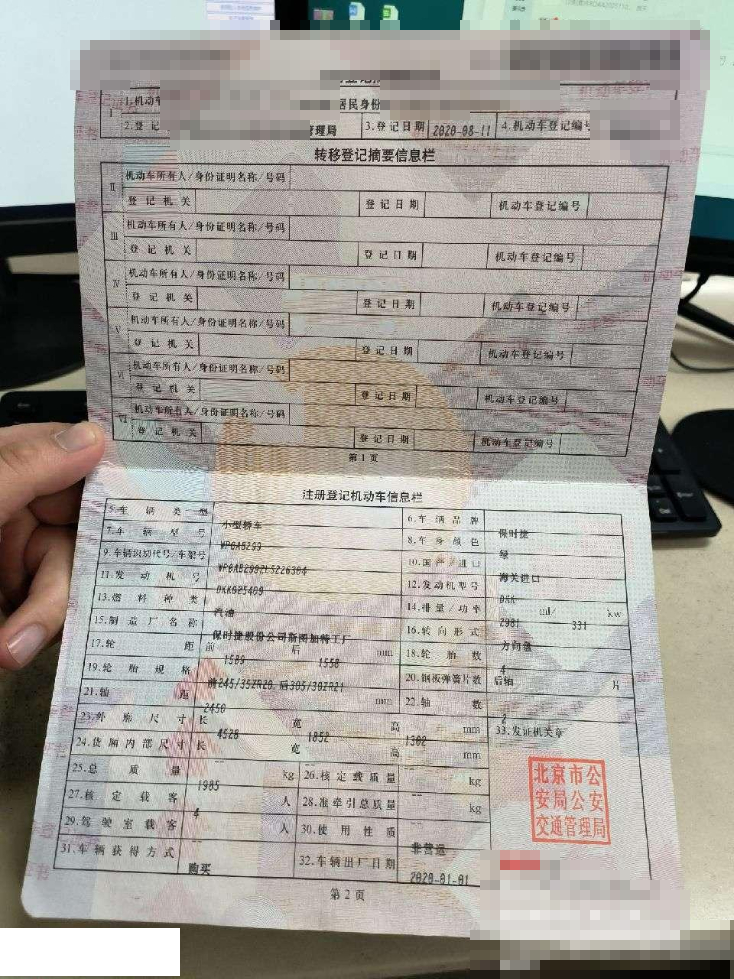 1.机动车
居民身份
2.登记
管理局 3.登记日期 2020-08-11 4.机动车登记编号
转移登记摘要信息栏
II 机动车所有人/身份证明名称/号码
登记机关 登记日期 机动车登记编号
III 机动车所有人/身份证明名称/号码
登记机关 登记日期 机动车登记编号
IV 机动车所有人/身份证明名称/号码
登记机关 登记日期 机动车登记编号
V 机动车所有人/身份证明名称/号码
登记机关 登记日期 机动车登记编号
VI 机动车所有人/身份证明名称/号码
登记机关 登记日期 机动车登记编号
VII 机动车所有人/身份证明名称/号码
登记机关 登记日期 机动车登记编号
第1页
注册登记机动车信息栏
5.车辆类型 小型轿车 6.车辆品牌 保时捷
7.车辆型号 8.车身颜色 绿
9.车辆识别代号/车架号 10.国产/进口 海关进口
11.发动机号 12.发动机型号
13.燃料种类 汽油 14.排量/功率 2981 ml/ 331 kw
15.制造厂名称 保时捷股份公司斯图加特工厂 16.转向形式 方向盘
17.轮距 前 1589 后 1558 mm 18.轮胎数 4
19.轮胎规格 前245/35ZR20,后305/30ZR21 20.钢板弹簧片数 后轴 片
21.轴距 2450 mm 22.轴数 2
23.外廓尺寸 长 4528 宽 1852 高 1302 mm 33.发证机关章
24.货厢内部尺寸 长 宽 高 mm
25.总质量 1985 kg 26.核定载质量 -- kg
27.核定载客 4 人 28.准牵引总质量 -- kg
29.驾驶室载客 -- 人 30.使用性质 非营运
31.车辆获得方式 购买 32.车辆出厂日期 2020-01-01
北京市公
安局公安
交通管理局
第2页